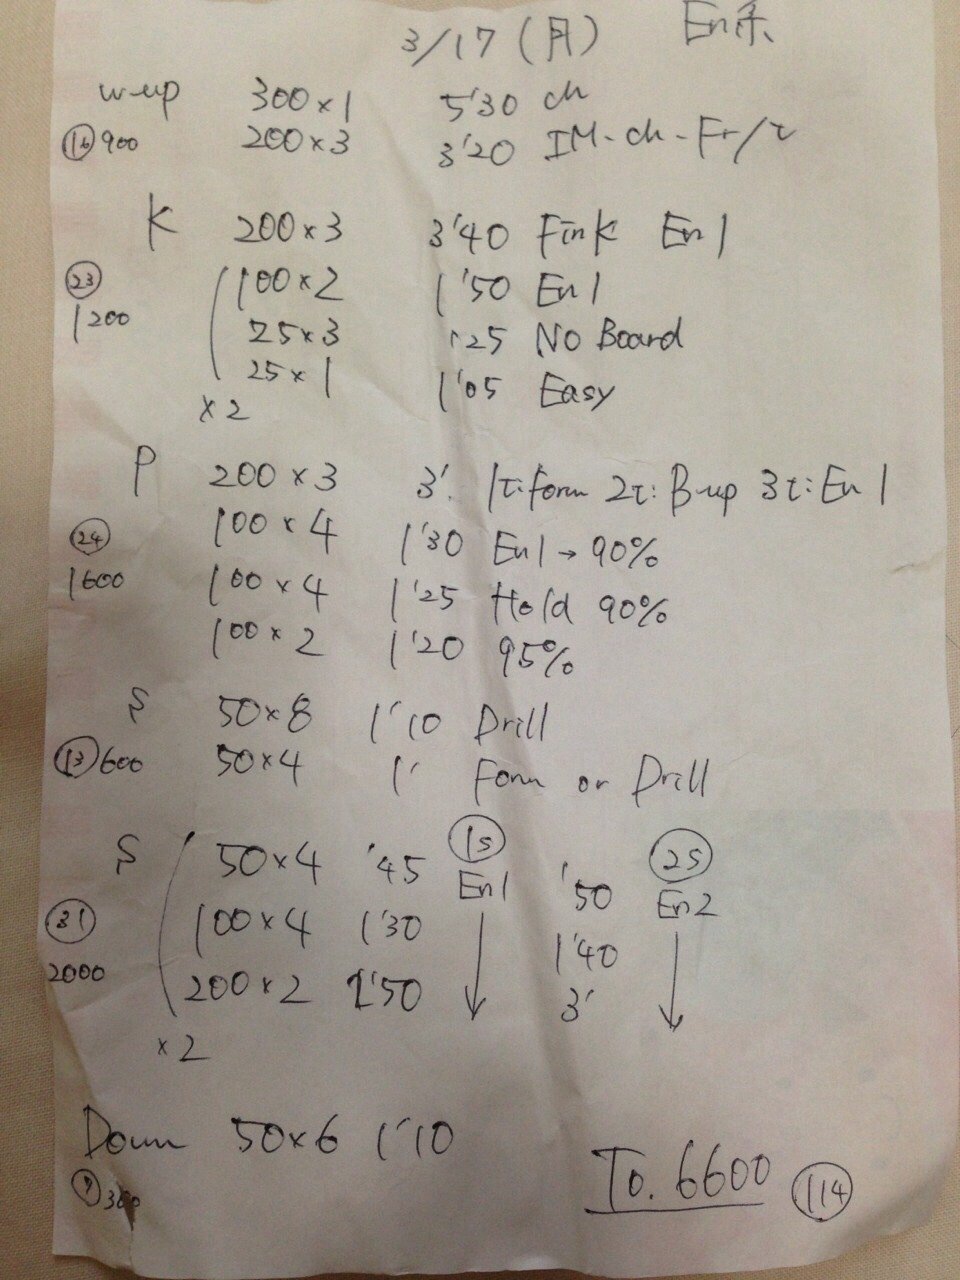 3/17 (月) En系
w-up 300×1 5'30 ch
⑯900 200×3 3'20 IM-ch-Fr/t
K 200×3 3'40 Fin K En1
㉓ 100×2 1'50 En1
1200 25×3 '25 No Board
25×1 1'05 Easy
×2
P 200×3 3' 1t:Form 2t:B-up 3t:En1
㉔ 100×4 1'30 En1→90%
1600 100×4 1'25 Hold 90%
100×2 1'20 95%
S 50×8 1'10 Drill
⑬600 50×4 1' Form or Drill
S 50×4 '45 1s En1 '50 2s En2
㉛ 100×4 1'30 ↓ 1'40 ↓
2000 200×2 2'50 3'
×2
Down 50×6 1'10
⑦300 To. 6600 (114)